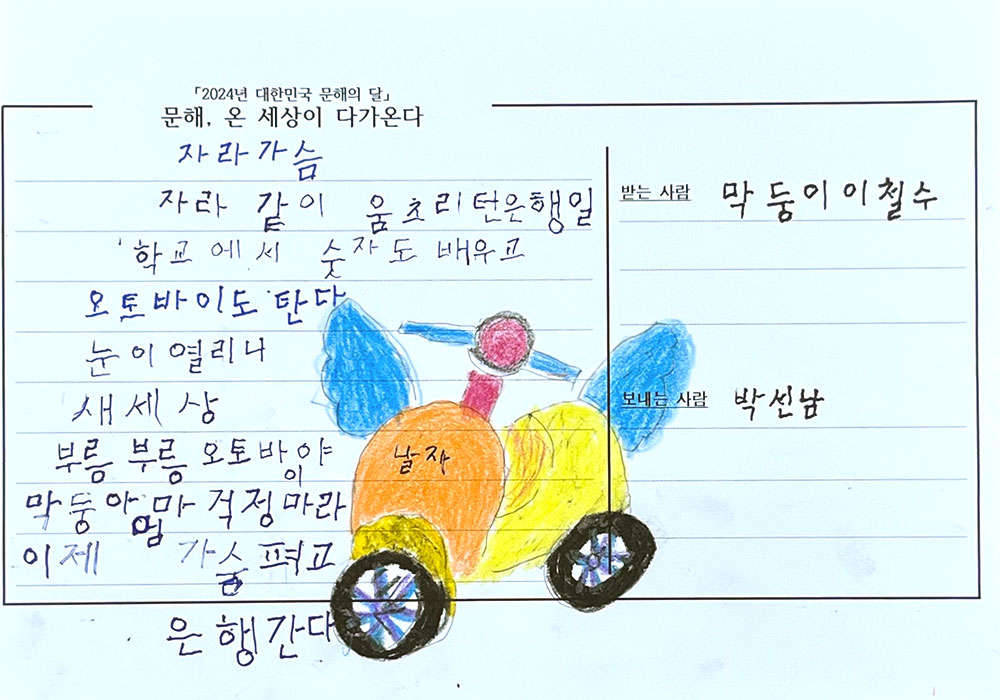 「2024년 대한민국 문해의 달」
문해, 온 세상이 다가온다
자라가슴
자라 같이 움츠리턴은행일
학교에세 숫자도 배우고
오토바이도 탄다
눈이열리니
새세상
부릉 부릉 오토바이야
날자
막둥아 엄마 걱정마라
이제 가슴펴고
은행간다
받는 사람 막둥이이철수
보내는 사람 박선남